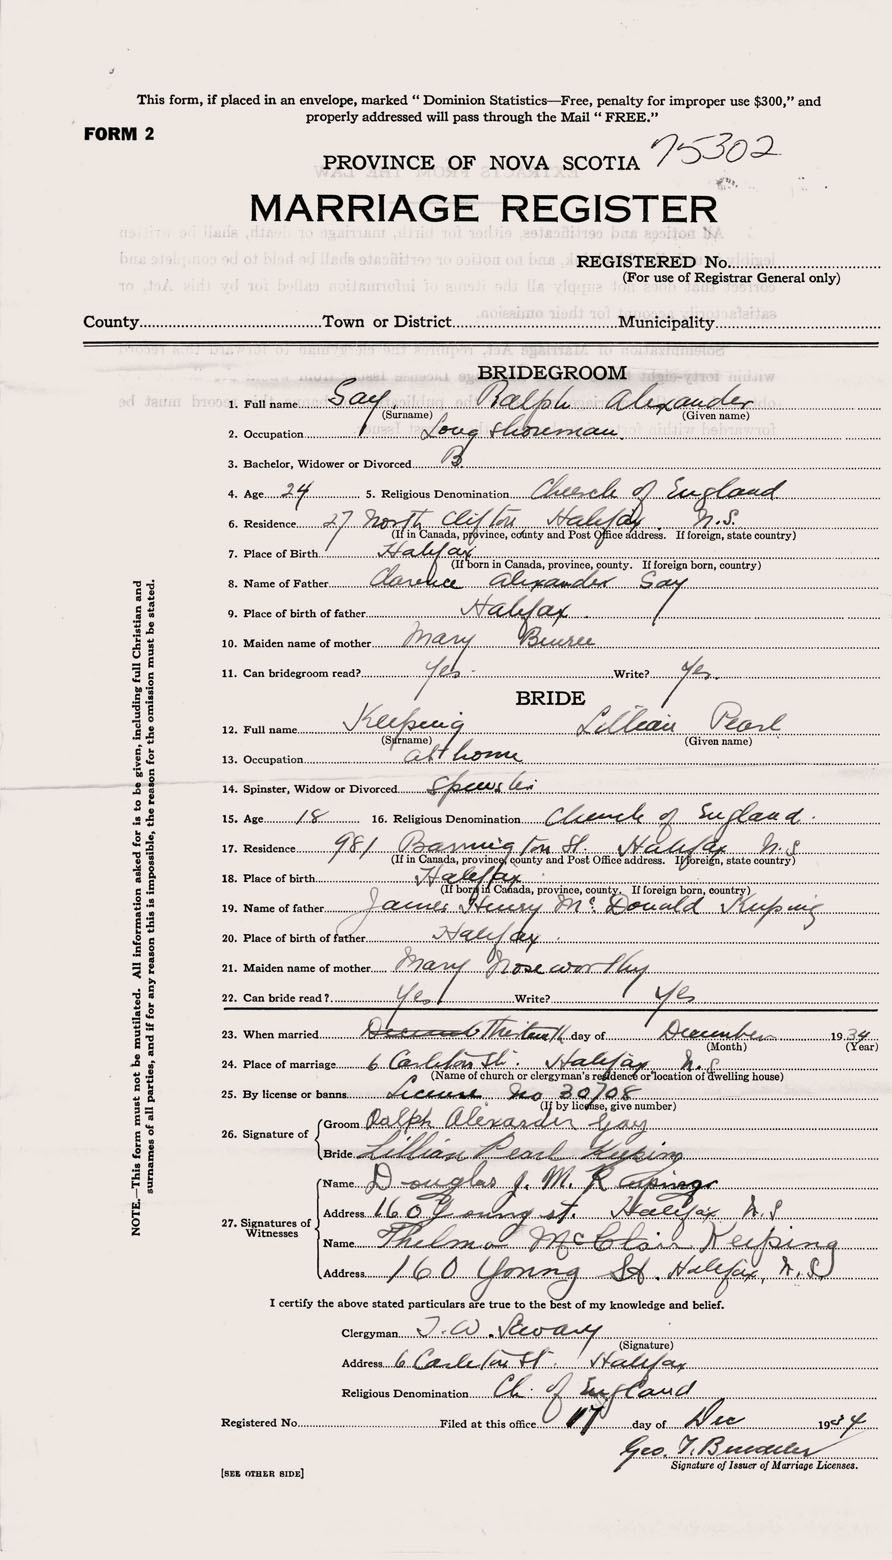 This form, if placed in an envelope, marked “ Dominion Statistics—Free, penalty for improper use $300,” and
properly addressed will pass through the Mail “ FREE.”
FORM 2
PROVINCE OF NOVA SCOTIA 75302
MARRIAGE REGISTER
REGISTERED No.
(For use of Registrar General only)
County Town or District Municipality
BRIDEGROOM
1. Full name Gay, Ralph Alexander
(Surname) (Given name)
2. Occupation Longshoreman.
3. Bachelor, Widower or Divorced B.
4. Age 24 5. Religious Denomination Church of England
6. Residence 27 North Clifton Halifax. N.S.
(If in Canada, province, county and Post Office address. If foreign, state country)
7. Place of Birth Halifax
(If born in Canada, province, county. If foreign born, country)
8. Name of Father Clarence Alexander Gay
9. Place of birth of father Halifax.
10. Maiden name of mother Mary
11. Can bridegroom read? Yes. Write? Yes.
BRIDE
12. Full name Keeping Lillian Pearl
(Surname) (Given name)
13. Occupation at home
14. Spinster, Widow or Divorced Spinster
15. Age 18 16. Religious Denomination Church of England.
17. Residence 981 Barrington St. Halifax N.S
(If in Canada, province, county and Post Office address. If foreign, state country)
18. Place of birth Halifax
(If born in Canada, province, county. If foreign born, country)
19. Name of father James Henry McDonald Keeping
20. Place of birth of father Halifax.
21. Maiden name of mother Mary Noseworthy
22. Can bride read? Yes Write? Yes
23. When married December Thirteenth day of December 1934
(Month) (Year)
24. Place of marriage 6 Carleton St. Halifax N.S
(Name of church or clergyman's residence or location of dwelling house)
25. By license or banns License No 30708
(If by license, give number)
26. Signature of
Groom Ralph Alexander Gay
Bride Lillian Pearl Keeping
27. Signatures of Witnesses
Name Douglas J. M. Keeping
Address 160 Young st. Halifax N.S
Name Thelma McClair Keeping
Address 160 Young St. Halifax, N.S
I certify the above stated particulars are true to the best of my knowledge and belief.
Clergyman T.W. Savary
(Signature)
Address 6 Carleton St. Halifax
Religious Denomination Ch. of England
Registered No. Filed at this office 17 day of Dec 1934
Geo. T.
Signature of Issuer of Marriage Licenses.
[SEE OTHER SIDE]
NOTE.—This form must not be mutilated. All information asked for is to be given, including full Christian and
surnames of all parties, and if for any reason this is impossible, the reason for the omission must be stated.